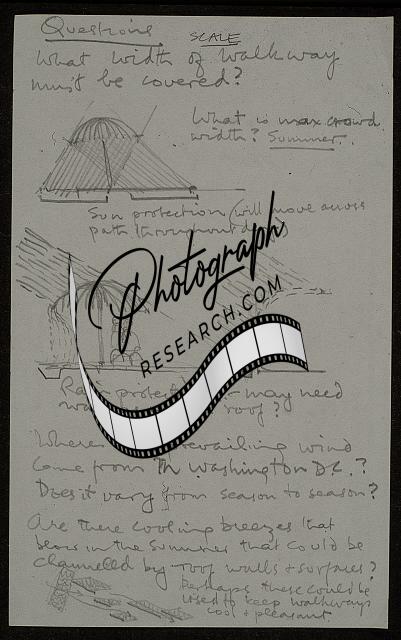 Questions
SCALE
What width of walkway
must be covered?
What is max crowd
width? Summer.
Sun protection (will move across
path throughout
Photograph
RESEARCH.COM
may need
roof?
Where prevailing wind
come from in Washington DC.?
Does it vary from season to season?
Are there cooling breezes that
bears in the summer that could be
channelled by roof walls + surfaces?
Perhaps these could be
used to keep walkways
cool + pleasant.